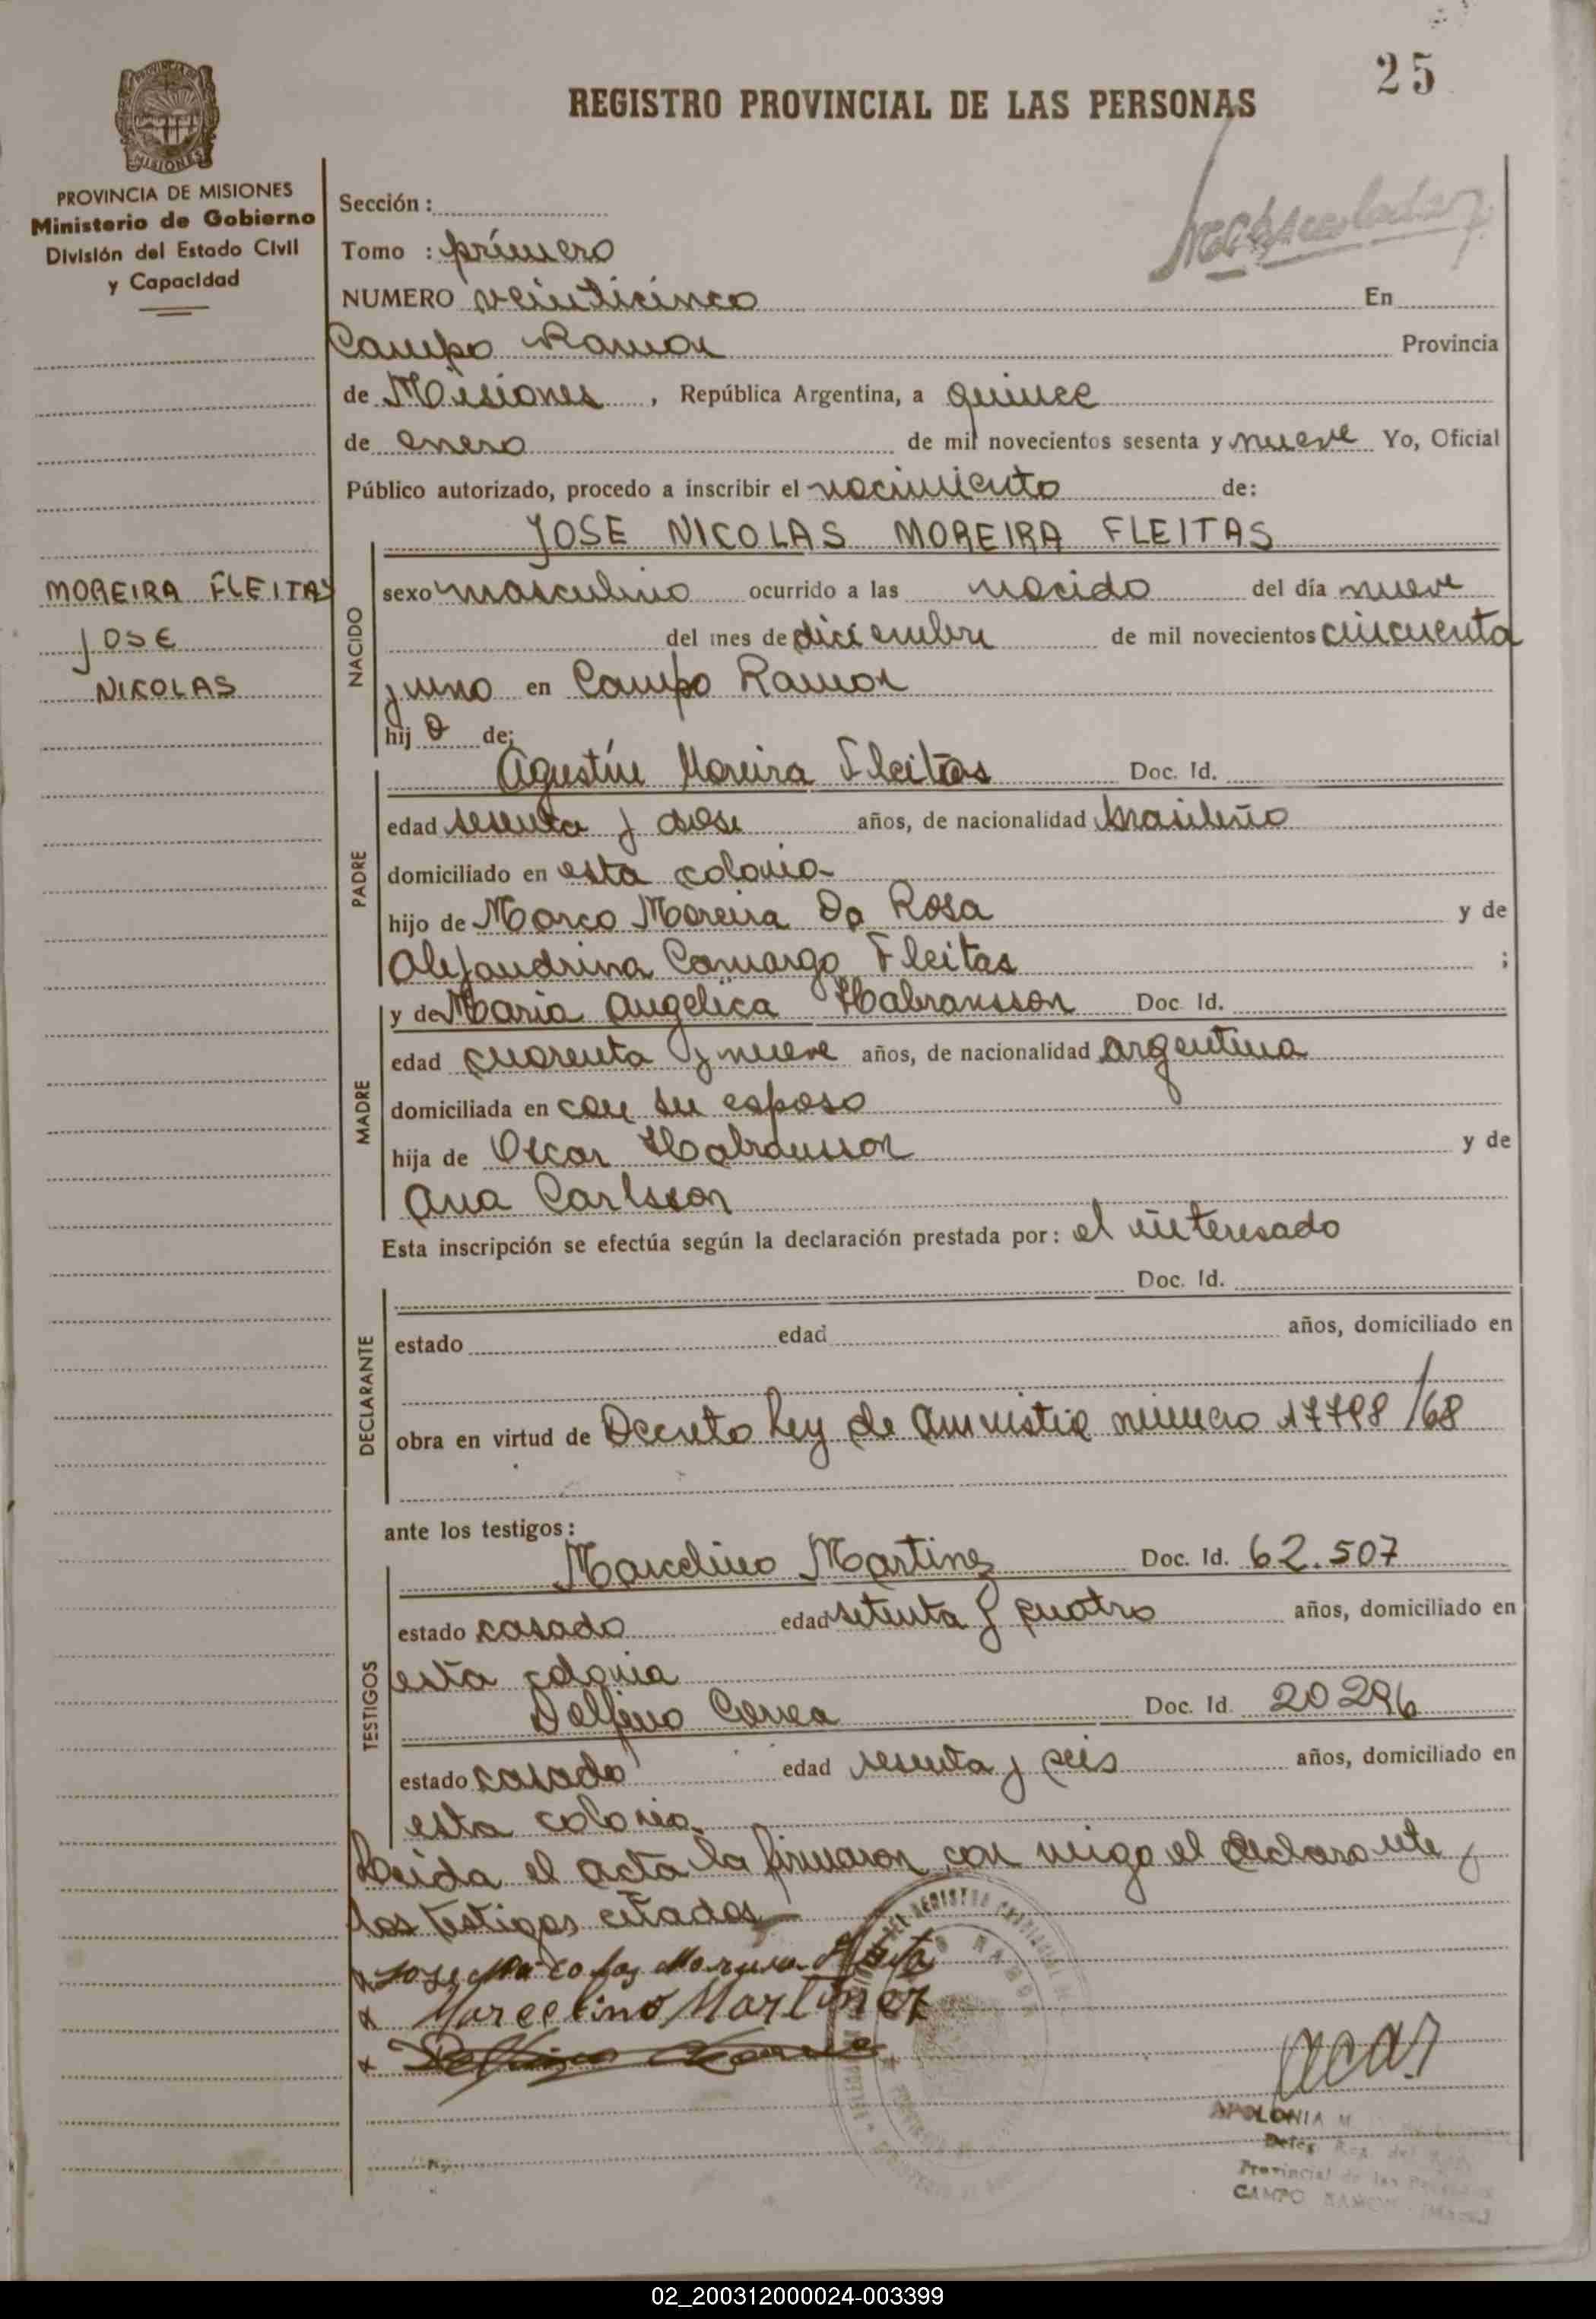 25
REGISTRO PROVINCIAL DE LAS PERSONAS
PROVINCIA DE MISIONES
PROVINCIA DE MISIONES
Ministerio de Gobierno
División del Estado Civil
y Capacidad
Sección :
Tomo : primero
NUMERO veinticinco En
Campo Ramon Provincia
de Misiones, República Argentina, a quince
de enero de mil novecientos sesenta y nueve Yo, Oficial
Público autorizado, procedo a inscribir el nacimiento de:
JOSE NICOLAS MOREIRA FLEITAS
MOREIRA FLEITAS
JOSE
NICOLAS
NACIDO
sexo masculino ocurrido a las nacido del día nueve
del mes de diciembre de mil novecientos cincuenta
y uno en Campo Ramon
hijo de;
PADRE
Agustin Moreira Fleitas Doc. Id.
edad sesenta y dose años, de nacionalidad brasileño
domiciliado en esta colonia
hijo de Marco Moreira Da Rosa y de
Alejandrina Camargo Fleitas ;
MADRE
y de Maria Angelica Habransson Doc. Id.
edad cuarenta y nueve años, de nacionalidad argentina
domiciliada en con su esposo
hija de Oscar Habransson y de
Ana Carlsson
Esta inscripción se efectúa según la declaración prestada por: el interesado
DECLARANTE
Doc. Id.
estado edad años, domiciliado en
obra en virtud de Decreto Ley de amnistia numero 17798/68
ante los testigos:
TESTIGOS
Marcelino Martinez Doc. Id. 62.507
estado casado edad setenta y cuatro años, domiciliado en
esta colonia
Delfino Correa Doc. Id. 20296
estado casado edad sesenta y seis años, domiciliado en
esta colonia.
Leida el acta la firmaron con migo el declarante y
los testigos citados
x Jose Nicolas Moreira
x Marcelino Martinez
x Delfino Correa
APOLONIA M.
Deleg. Reg. del
Provincial de las Personas
CAMPO RAMON
02_200312000024-003399